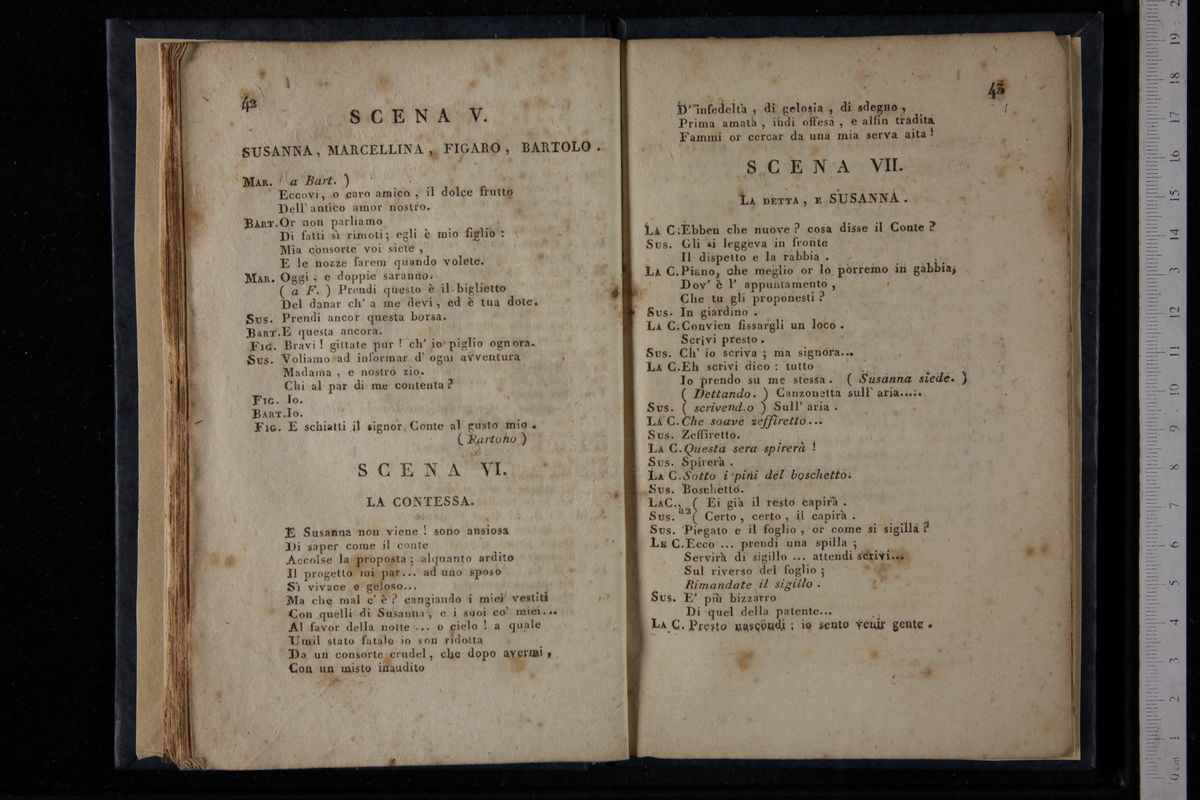 42
SCENA V.
SUSANNA, MARCELLINA, FIGARO, BARTOLO.
MAR. ( a Bart. )
Eccovi, o caro amico, il dolce frutto
Dell' antico amor nostro.
BART. Or non parliamo
Di fatti sì rimoti; egli è mio figlio:
Mia consorte voi siete,
E le nozze farem quando volete.
MAR. Oggi, e doppie saranno.
( a F. ) Prendi questo è il biglietto
Del danar ch' a me devi, ed è tua dote.
SUS. Prendi ancor questa borsa.
BART. E questa ancora.
FIG. Bravi! gittate pur! ch' io piglio ognora.
SUS. Voliamo ad informar d' ogni avventura
Madama, e nostro zio.
Chi al par di me contenta?
FIG. Io.
BART. Io.
FIG. E schiatti il signor Conte al gusto mio.
( Partono )
SCENA VI.
LA CONTESSA.
E Susanna non viene! sono ansiosa
Di saper come il conte
Accolse la proposta; alquanto ardito
Il progetto mi par... ad uno sposo
Sì vivace e geloso...
Ma che mal c' è? cangiando i miei vestiti
Con quelli di Susanna, e i suoi co' miei...
Al favor della notte ... o cielo! a quale
Umil stato fatale io son ridotta
Da un consorte crudel, che dopo avermi,
Con un misto inaudito
43
D' infedeltà, di gelosia, di sdegno,
Prima amata, indi offesa, e alfin tradita
Fammi or cercar da una mia serva aita!
SCENA VII.
LA DETTA, E SUSANNA.
LA C. Ebben che nuove? cosa disse il Conte?
SUS. Gli si leggeva in fronte
Il dispetto e la rabbia.
LA C. Piano, che meglio or lo porremo in gabbia,
Dov' è l' appuntamento,
Che tu gli proponesti?
SUS. In giardino.
LA C. Convien fissargli un loco.
Scrivi presto.
SUS. Ch' io scriva; ma signora...
LA C. Eh scrivi dico: tutto
Io prendo su me stessa. ( Susanna siede. )
( Dettando. ) Canzonetta sull' aria.....
SUS. ( scrivend.o ) Sull' aria.
LA C. Che soave zeffiretto...
SUS. Zeffiretto.
LA C. Questa sera spirerà!
SUS. Spirerà.
LA C. Sotto i pini del boschetto.
SUS. Boschetto.
LA C. ( Ei già il resto capirà.
a2
SUS. ( Certo, certo, il capirà.
SUS. Piegato e il foglio, or come si sigilla?
LE C. Ecco ... prendi una spilla;
Servirà di sigillo ... attendi scrivi...
Sul riverso del foglio;
Rimandate il sigillo.
SUS. E' più bizzarro
Di quel della patente...
LA C. Presto nascondi: io sento venir gente.
0 cm 1 2 3 4 5 6 7 8 9 10 11 12 13 14 15 16 17 18 19 2